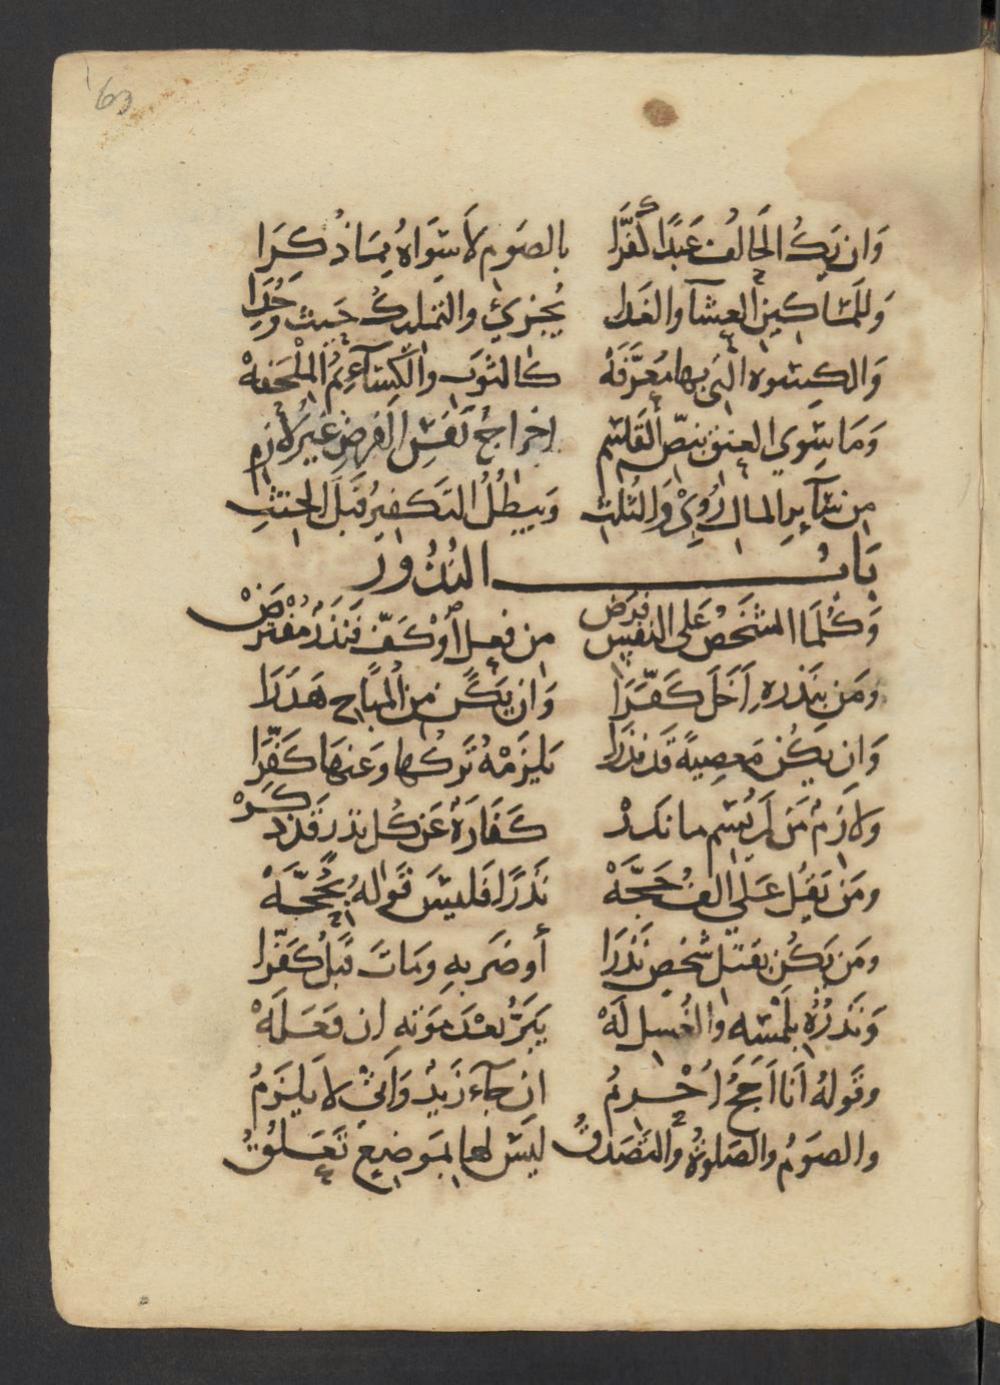 وَان يَكُ الحَالفُ عَبدًا كَفَّرَا بالصَومِ لاَ سِوَاهُ مِمَا ذُكَرَا
وَللمَسَاكِينِ العِشَآ والغَدَا يُجزِئُ والتمليكُ حَيثُ وُجَدَا
وَالكِسْوه التى بهَا مُعَرَّفَهْ كالثَوبِ والكِسَآءِ ثُمُ المِلْحَفهْ
وَمَا سِوَى العِتق بنصّ القَاسِم اخراجُ نَفسِ الفَرضِ غيرُ لاَزم
من سَآيرِ المال رُوِىْ وَالثلث وَيبطُلُ التَكفِيرُ قَبلَ الحِنثِ
بَابُ النُذُور
وَكُلَمَا الشَخصُ عَلى النفسِ فَرَضْ من فعل أوْ كَفّ فَنَذرٌ مُفْتَرَضْ
وَمَن بنَذرهِ اَخَلَ كَفَّرَا وَان يَكُن مِن المُبَاح هَدَرَا
وَان يَكُن مَعصِيةً قَد نذَرَا يَلزَمْهُ تَركُها وَعَنهَا كَفَّرَا
وَلاَزمٌ مَن لَم يُسَم ما نَذَرْ كَفَارَةٌ عَن كُل نذر قَد ذَكَرْ
ومَن يَقُل عَلَيَّ الفُ حَجَّهْ نَذرًا فَليسَ قَولهُ بحُجَّهْ
ومَن يَكُن بقَتل شَخصٍ نَذَرَا أو ضَربهِ وَمَاتَ قَبلُ كَفَّرا
وَنَذرُهُ بلَمْسه والغُسل لَهْ يَبَرُّ بعْدَ مَوته ان فَعَلَهْ
وقَولهُ أنَا اَحُجُّ اُحْرمُ ان جَآءَ زَيدٌ وَأتَىْ لا يَلزَمُ
والصَومُ والصَلوةُ والتَصَدقُ ليسَ لها بمَوضِعٍ تَعَلُقُ